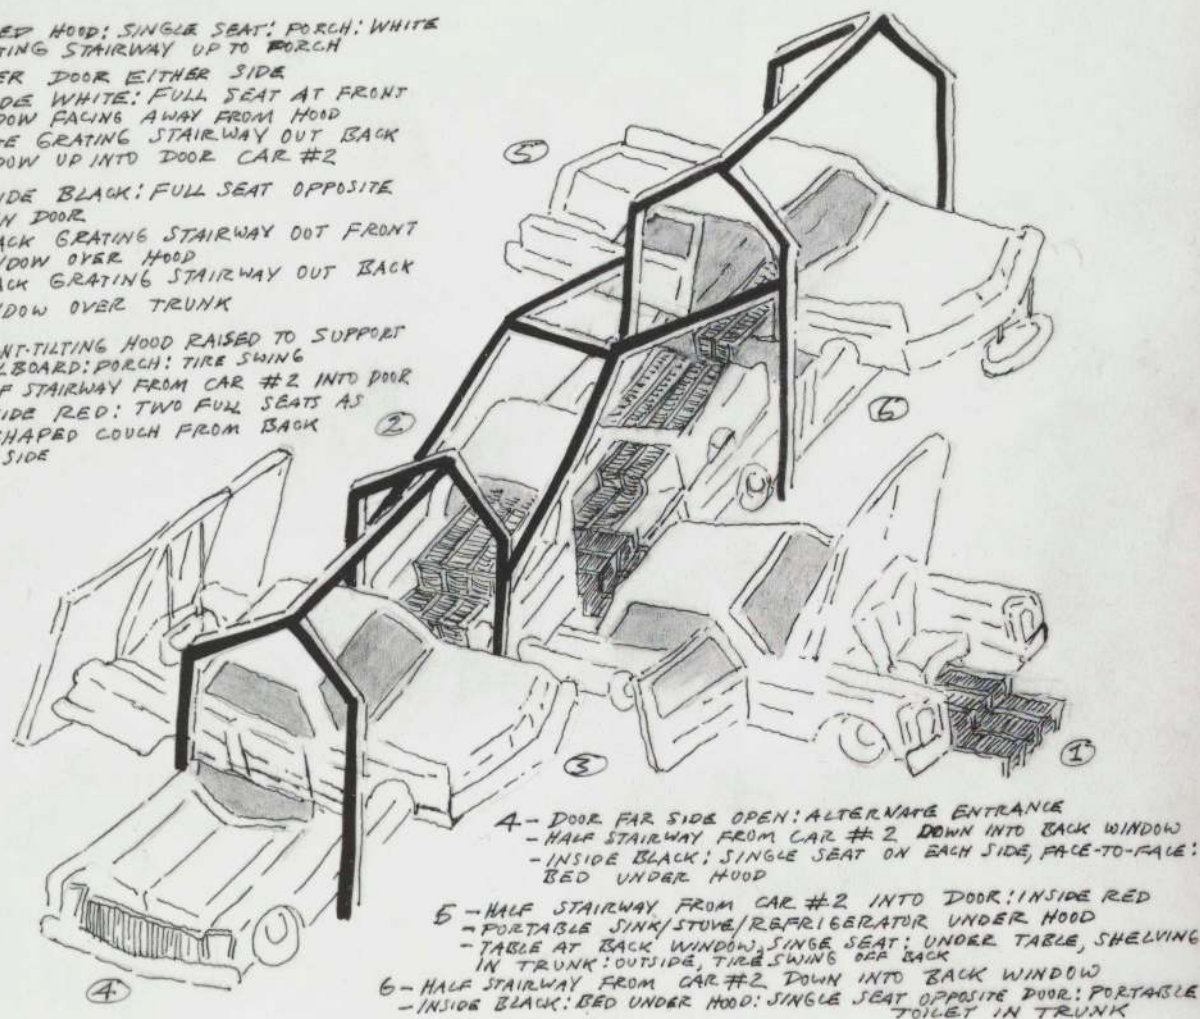 HOOD: SINGLE SEAT: PORCH: WHITE
STAIRWAY UP TO PORCH
DOOR EITHER SIDE
WHITE: FULL SEAT AT FRONT
FACING AWAY FROM HOOD
GRATING STAIRWAY OUT BACK
UP INTO DOOR CAR #2
BLACK: FULL SEAT OPPOSITE
DOOR
GRATING STAIRWAY OUT FRONT
OVER HOOD
GRATING STAIRWAY OUT BACK
OVER TRUNK
TILTING HOOD RAISED TO SUPPORT
PORCH: TIRE SWING
STAIRWAY FROM CAR #2 INTO DOOR
RED: TWO FULL SEATS AS
SHAPED COUCH FROM BACK
SIDE
5
2
6
3
1
4
4 - DOOR FAR SIDE OPEN: ALTERNATE ENTRANCE
- HALF STAIRWAY FROM CAR #2 DOWN INTO BACK WINDOW
- INSIDE BLACK: SINGLE SEAT ON EACH SIDE, FACE-TO-FACE:
BED UNDER HOOD
5 - HALF STAIRWAY FROM CAR #2 INTO DOOR: INSIDE RED
- PORTABLE SINK/STOVE/REFRIGERATOR UNDER HOOD
- TABLE AT BACK WINDOW, SINGE SEAT: UNDER TABLE, SHELVING
IN TRUNK: OUTSIDE, TIRE SWING OFF BACK
6 - HALF STAIRWAY FROM CAR #2 DOWN INTO BACK WINDOW
- INSIDE BLACK: BED UNDER HOOD: SINGLE SEAT OPPOSITE DOOR: PORTABLE
TOILET IN TRUNK